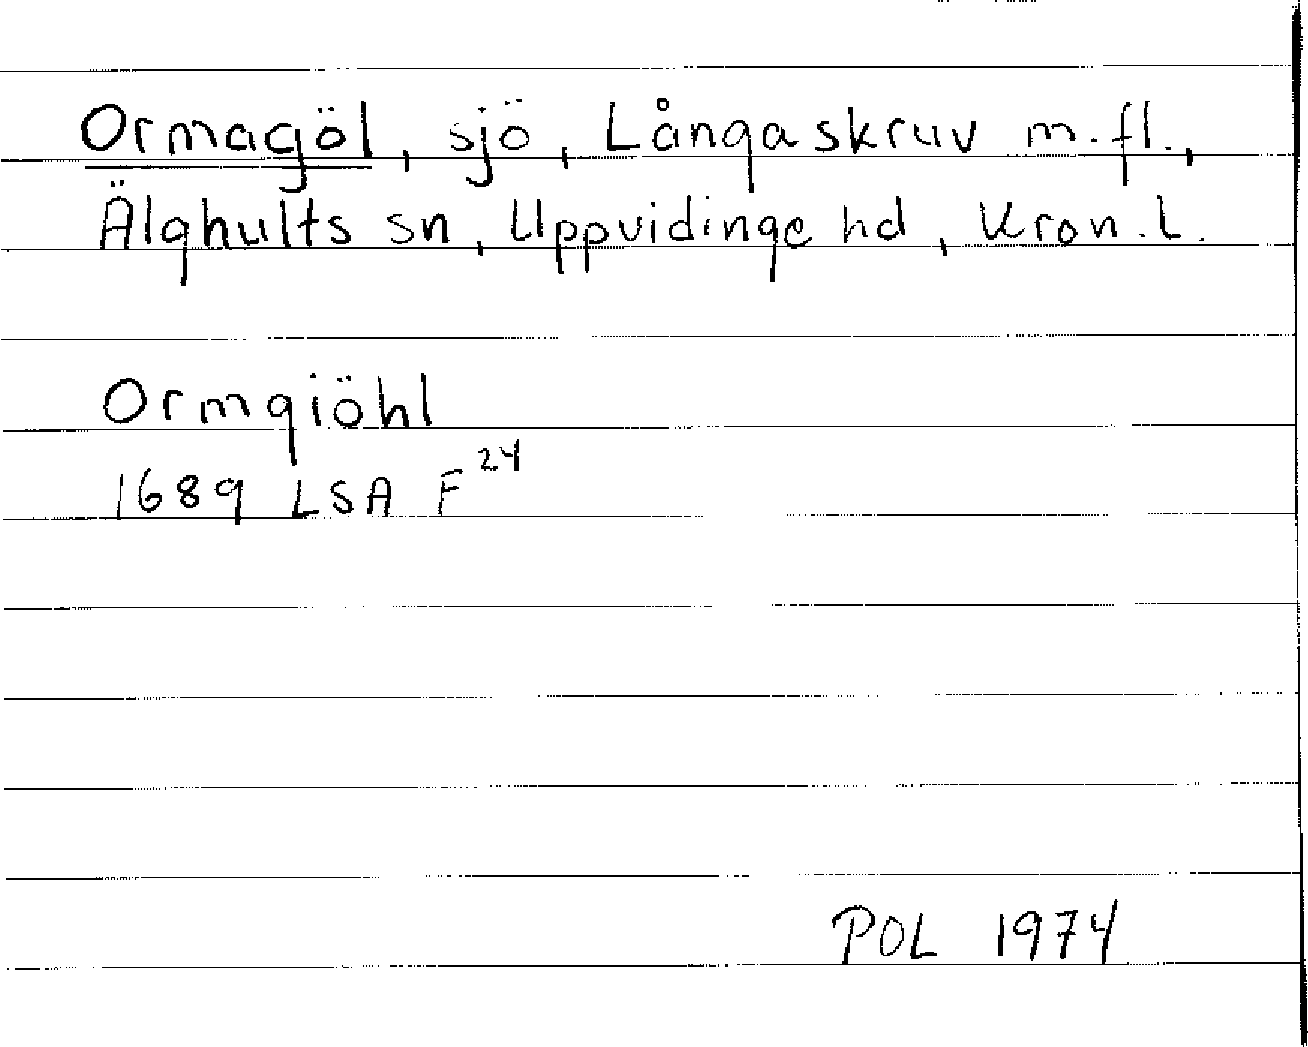 Ormagöl, sjö, Långaskruv m.fl.,
Älghults sn, Uppvidinge hd, Kron.L.
Ormgiöhl
1689 LSA F 24
POL 1974